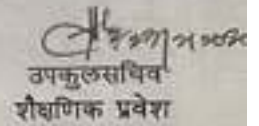 उपकुलसचिव
शैक्षणिक प्रवेश